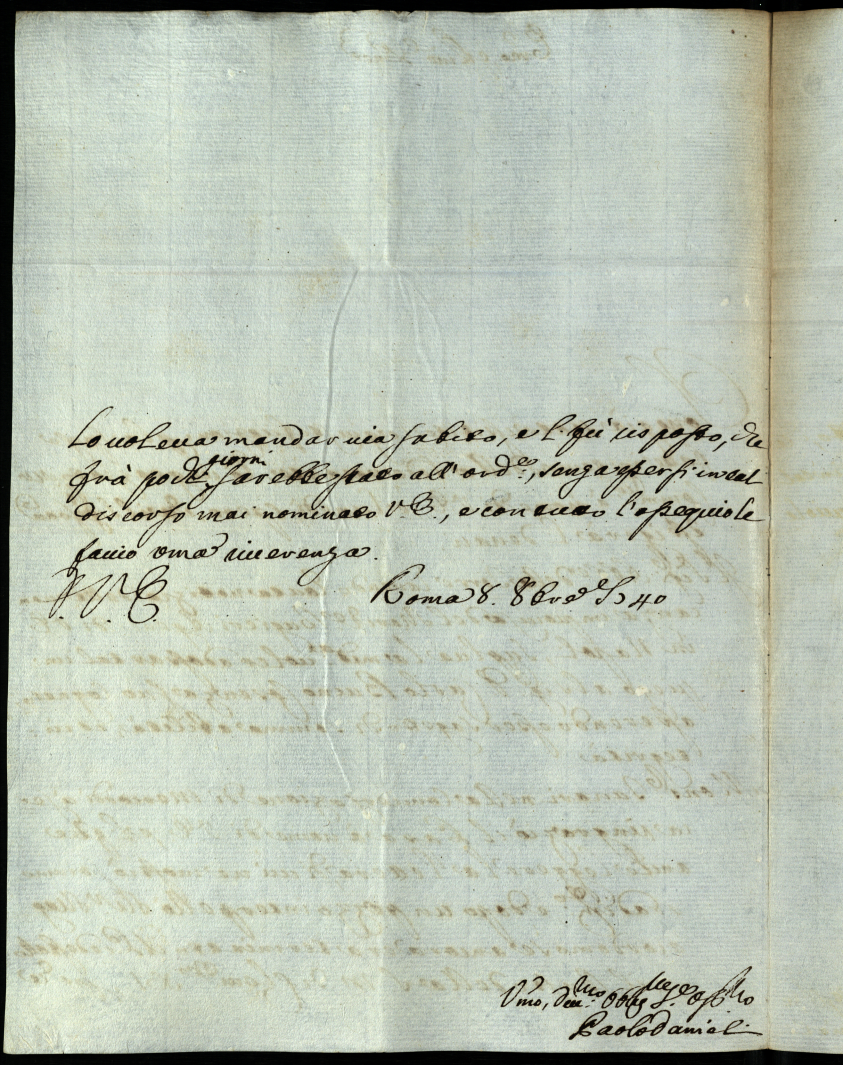 Lo voleva mandar via subito, e li fù risposto, che
frà pochi giorni sarebbe stato all' ord.e, senza essersi in tal
discorso mai nominato V. E., e con tutto l'ossequio le
faccio uma riverenza.
V. E. Roma 8. 8bre 1740
Vmo, deu.mo obblig
Paolo Daniel